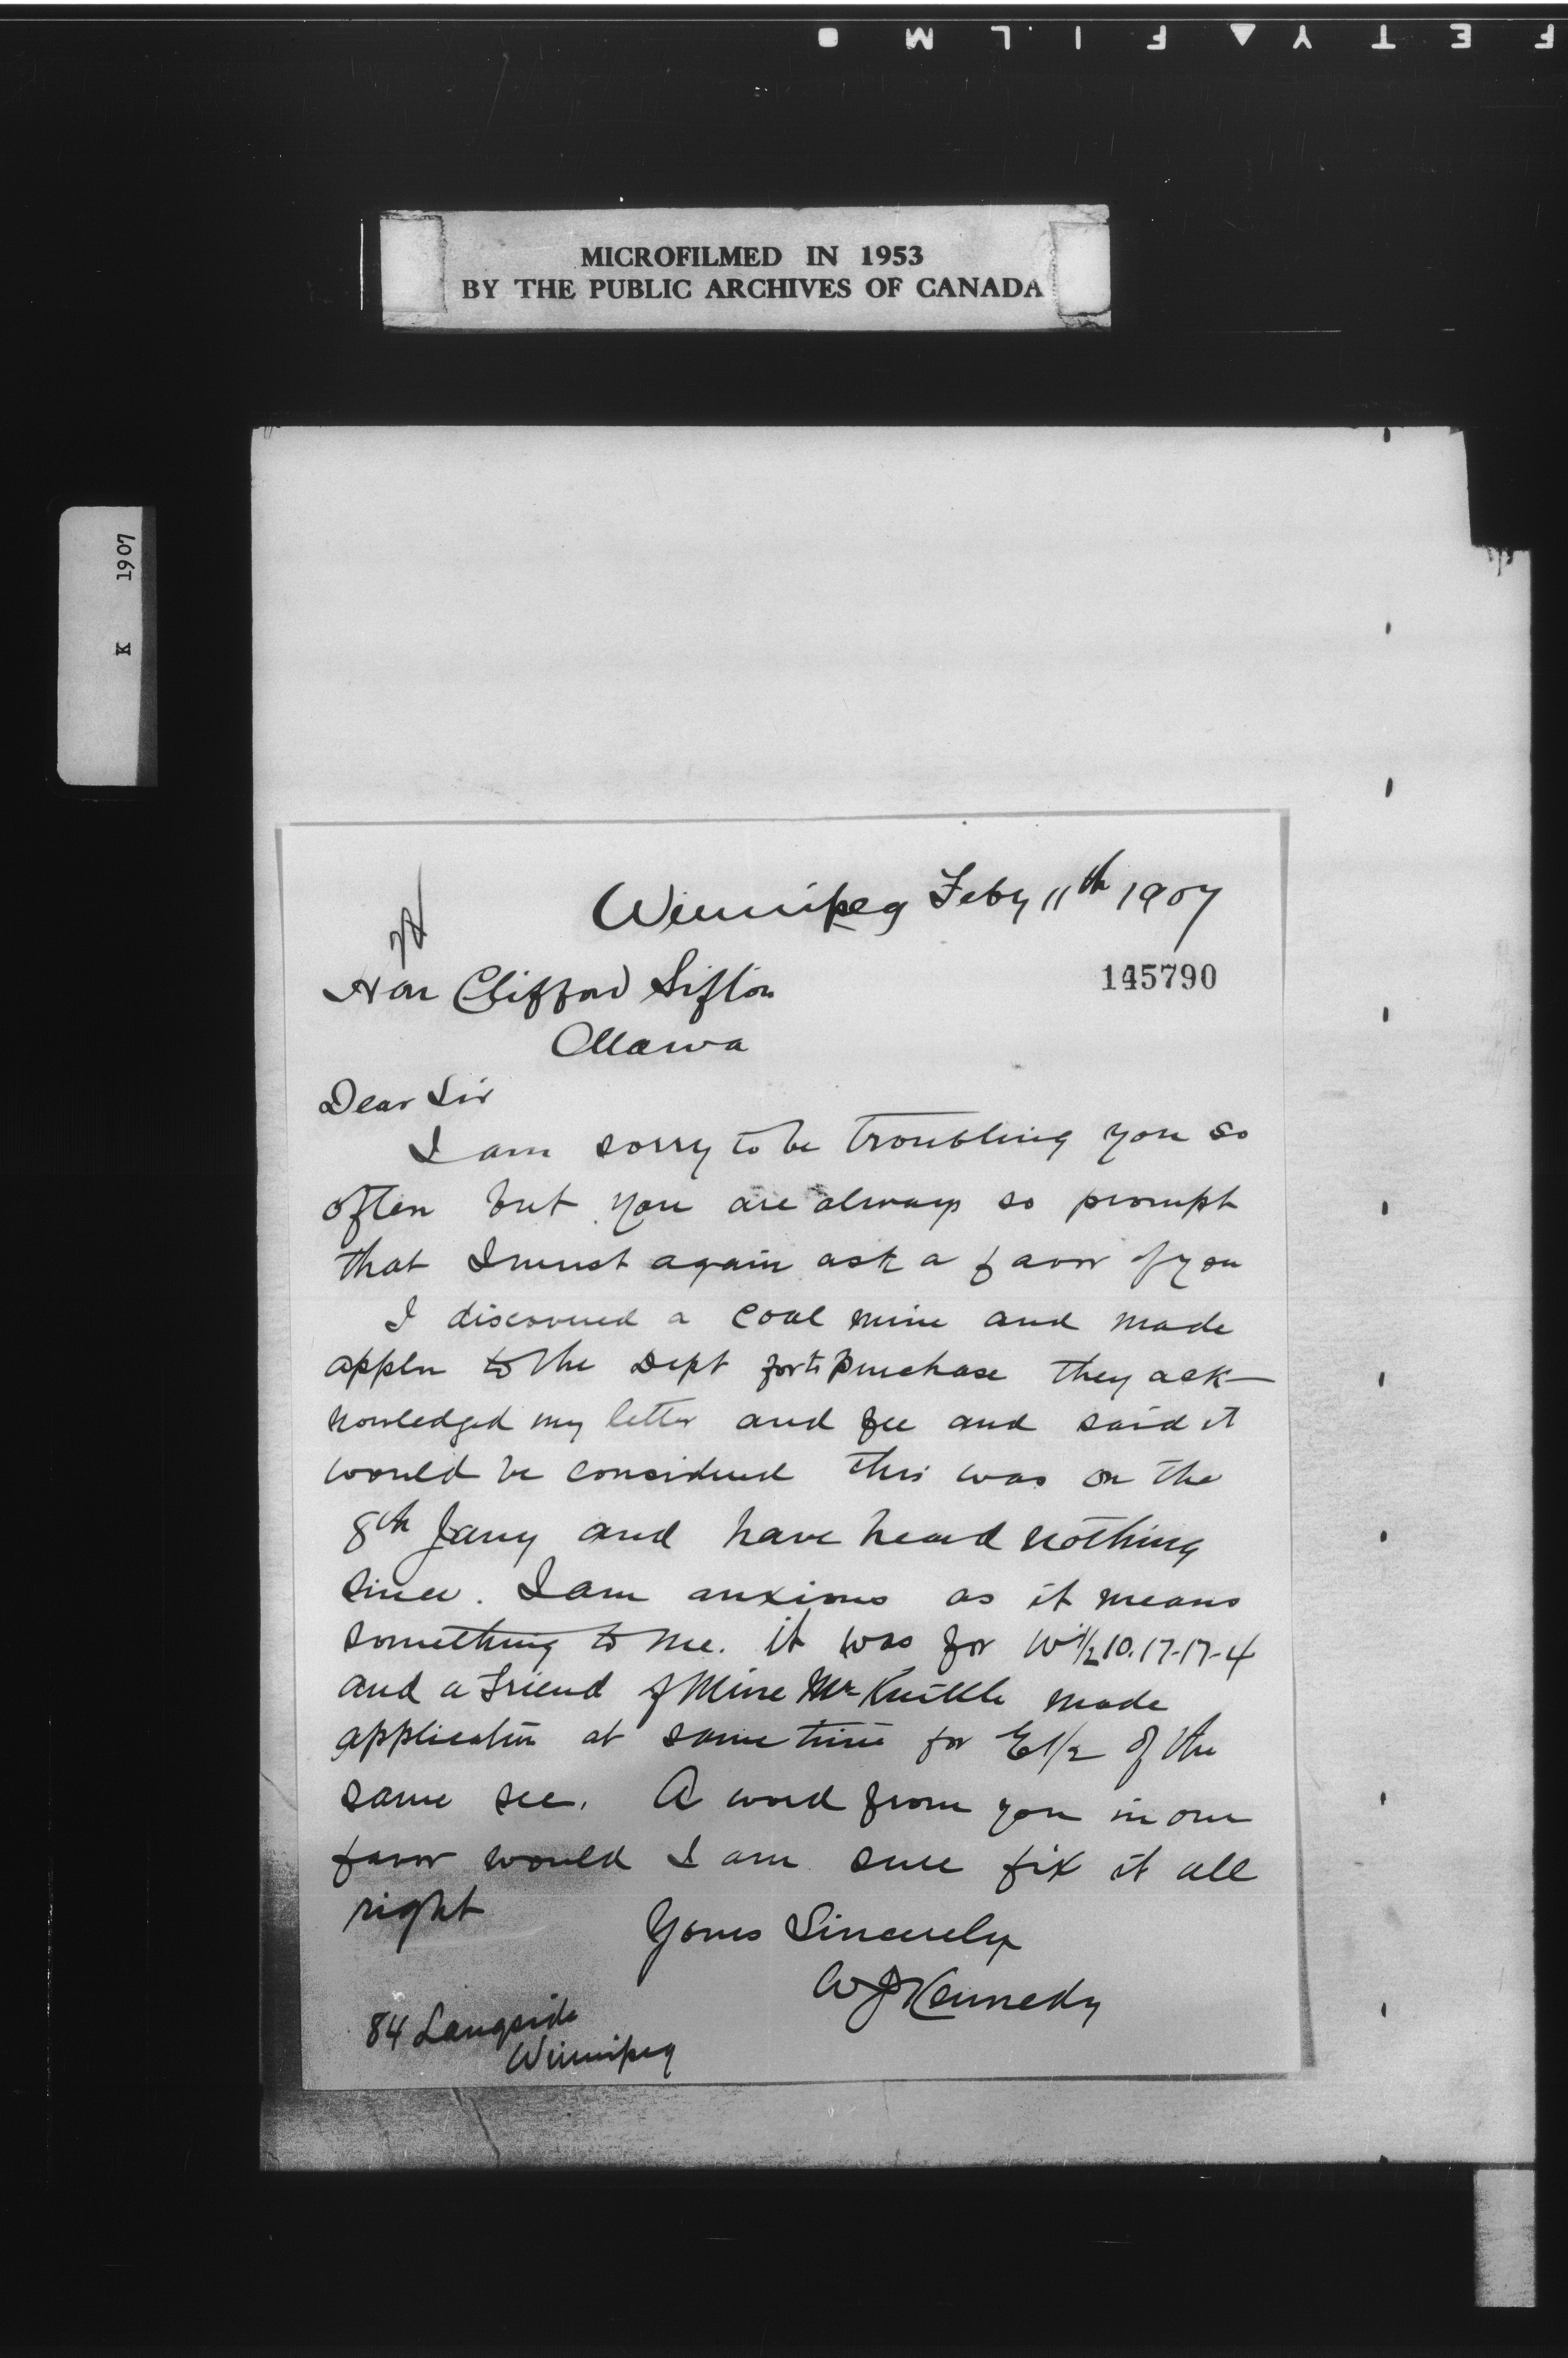 F E T Y ▲ F I L M ●
MICROFILMED IN 1953
BY THE PUBLIC ARCHIVES OF CANADA
K 1907
Winnipeg Feby 11th 1907
145790
Hon Clifford Sifton
Ottawa
Dear Sir
I am sorry to be troubling you so
often but you are always so prompt
that I must again ask a favor of you
I discovered a coal mine and made
appln to the Dept for to purchase they ack-
nowledged my letter and fee and said it
would be considered this was on the
8th Jany and have heard nothing
since. I am anxious as it means
something to me. it was for W 1/2 10.17-17-4
and a friend of mine Mr made
application at same time for E 1/2 of the
same sec. A word from you in our
favor would I am sure fix it all
right
Yours Sincerely
W J Kennedy
84 Langside
Winnipeg